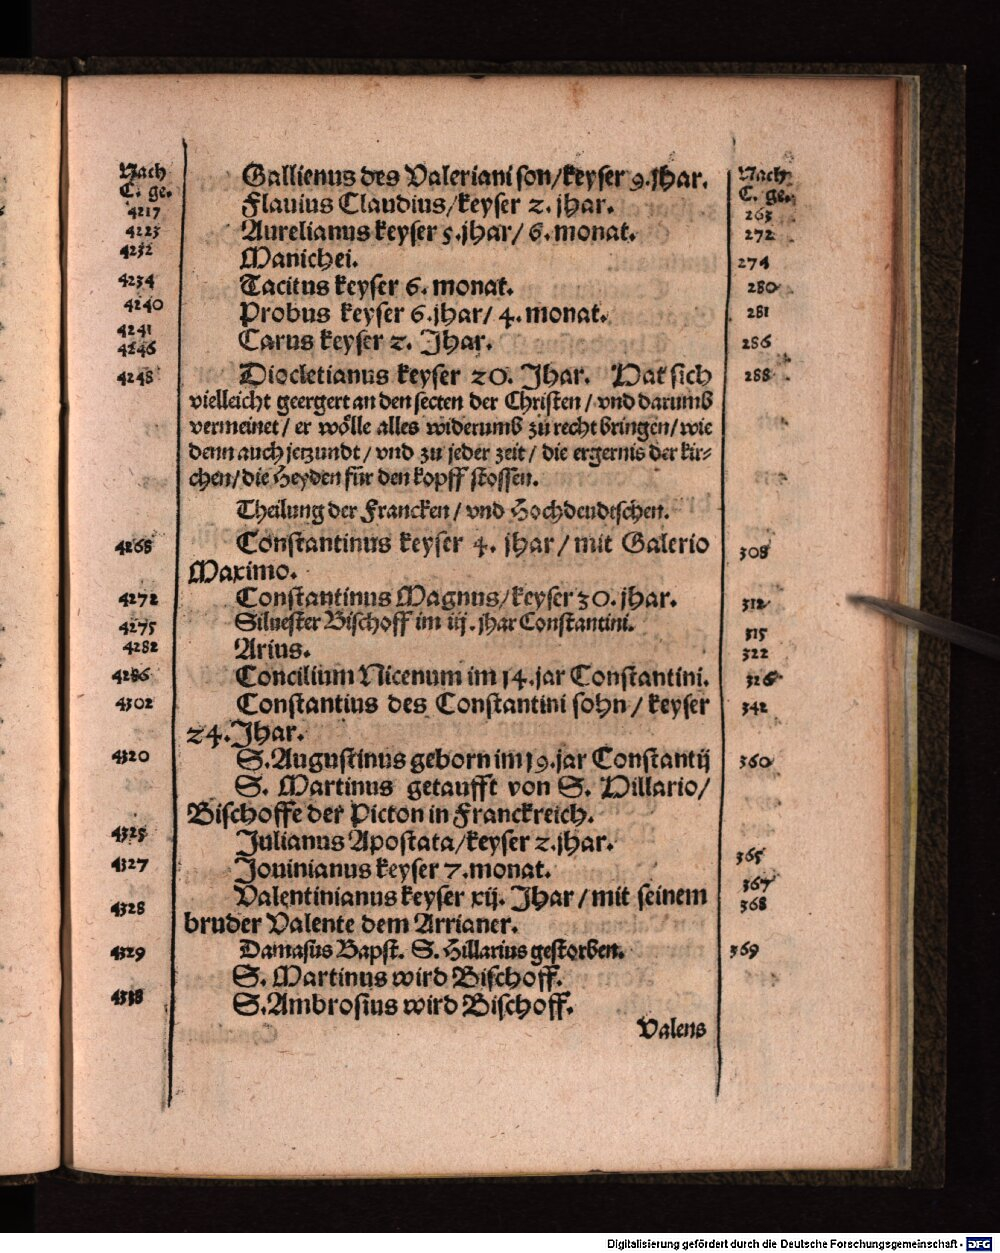 Nach Gallienus des Valeriani son/keyser 9.jhar. Nach
C. ge. Flauius Claudius/keyser 2. jhar. C. ge.
4217 263
4223 Aurelianus keyser 5.jhar/ 6. monat. 272
4232 Manichei. 274
4234 Tacitus keyser 6. monat. 280
4240 Probus keyser 6.jhar/ 4. monat. 281
4241
4246 Carus keyser 2. Jhar. 286
4248 Diocletianus keyser 20. Jhar. Hat sich 288
vielleicht geergert an den secten der Christen / vnd darumb
vermeinet / er wölle alles widerumb zu recht bringen/ wie
denn auch jetzundt / vnd zu jeder zeit / die ergernis der kir-
chen/die Heyden für den kopff stossen.
Theilung der Francken / vnd Hochdeudtschen.
4268 Constantinus keyser 4. jhar / mit Galerio 308
Maximo.
4272 Constantinus Magnus/keyser 30. jhar. 312
4275 Siluester Bischoff im iij. jhar Constantini. 315
4282 Arius. 322
4286 Concilium Nicenum im 14.jar Constantini. 326
4302 Constantius des Constantini sohn / keyser 342
24. Jhar.
4320 S. Augustinus geborn im 19.jar Constantij 360
S. Martinus getaufft von S. Hillario/
Bischoffe der Picton in Franckreich.
4325 Julianus Apostata/keyser 2.jhar. 365
4327 Jouinianus keyser 7.monat. 367
4328 Valentinianus keyser xij. Jhar / mit seinem 368
bruder Valente dem Arrianer.
4329 Damasus Bapst. S. Hillarius gestorben. 369
S. Martinus wird Bischoff.
4338 S. Ambrosius wird Bischoff.
Valens
Digitalisierung gefördert durch die Deutsche Forschungsgemeinschaft - DFG